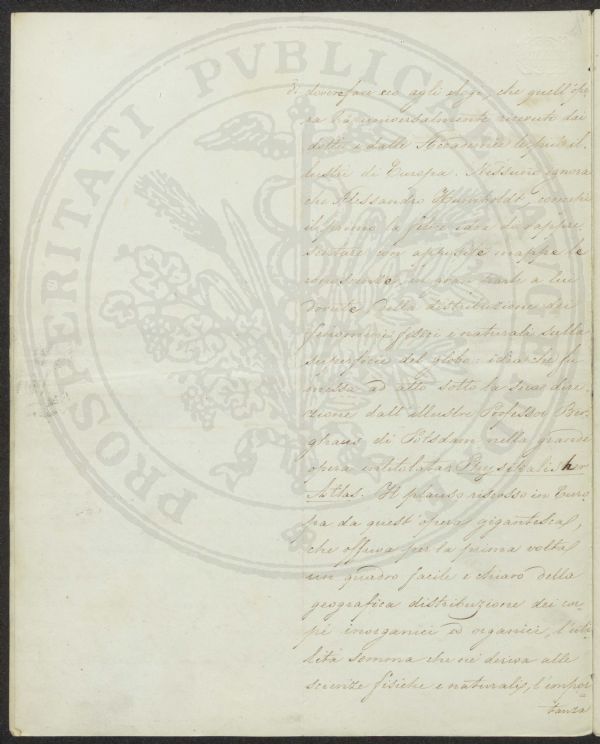 PROSPERITATI PVBLICAE AVGENDAE
di dover far eco agli elogi che quell'ope-
ra ha universalmente ricevuto dai
dotti e dalle Accademie le più il-
lustri di Europa. Nessuno ignora
che Alessandro Humboldt concepì
il primo la felice idea di rappre-
sentare con apposite mappe le
conoscenze, in gran parte a lui
dovute sulla distribuzione dei
fenomeni fisici e naturali sulla
superficie del globo: idea che fu
messa ad atto sotto la sua dire-
zione dall'illustre Professor Ber-
ghaus di Potsdam nella grande
opera intitolata: Physikalischer
Atlas. Il plauso riscosso in Euro-
pa da quest'opera gigantesca,
che offriva per la prima volta
un quadro facile e chiaro della
geografica distribuzione dei cor-
pi inorganici ed organici, l'uti-
lità somma che ne deriva alle
scienze fisiche e naturali, l'impor-
tanza